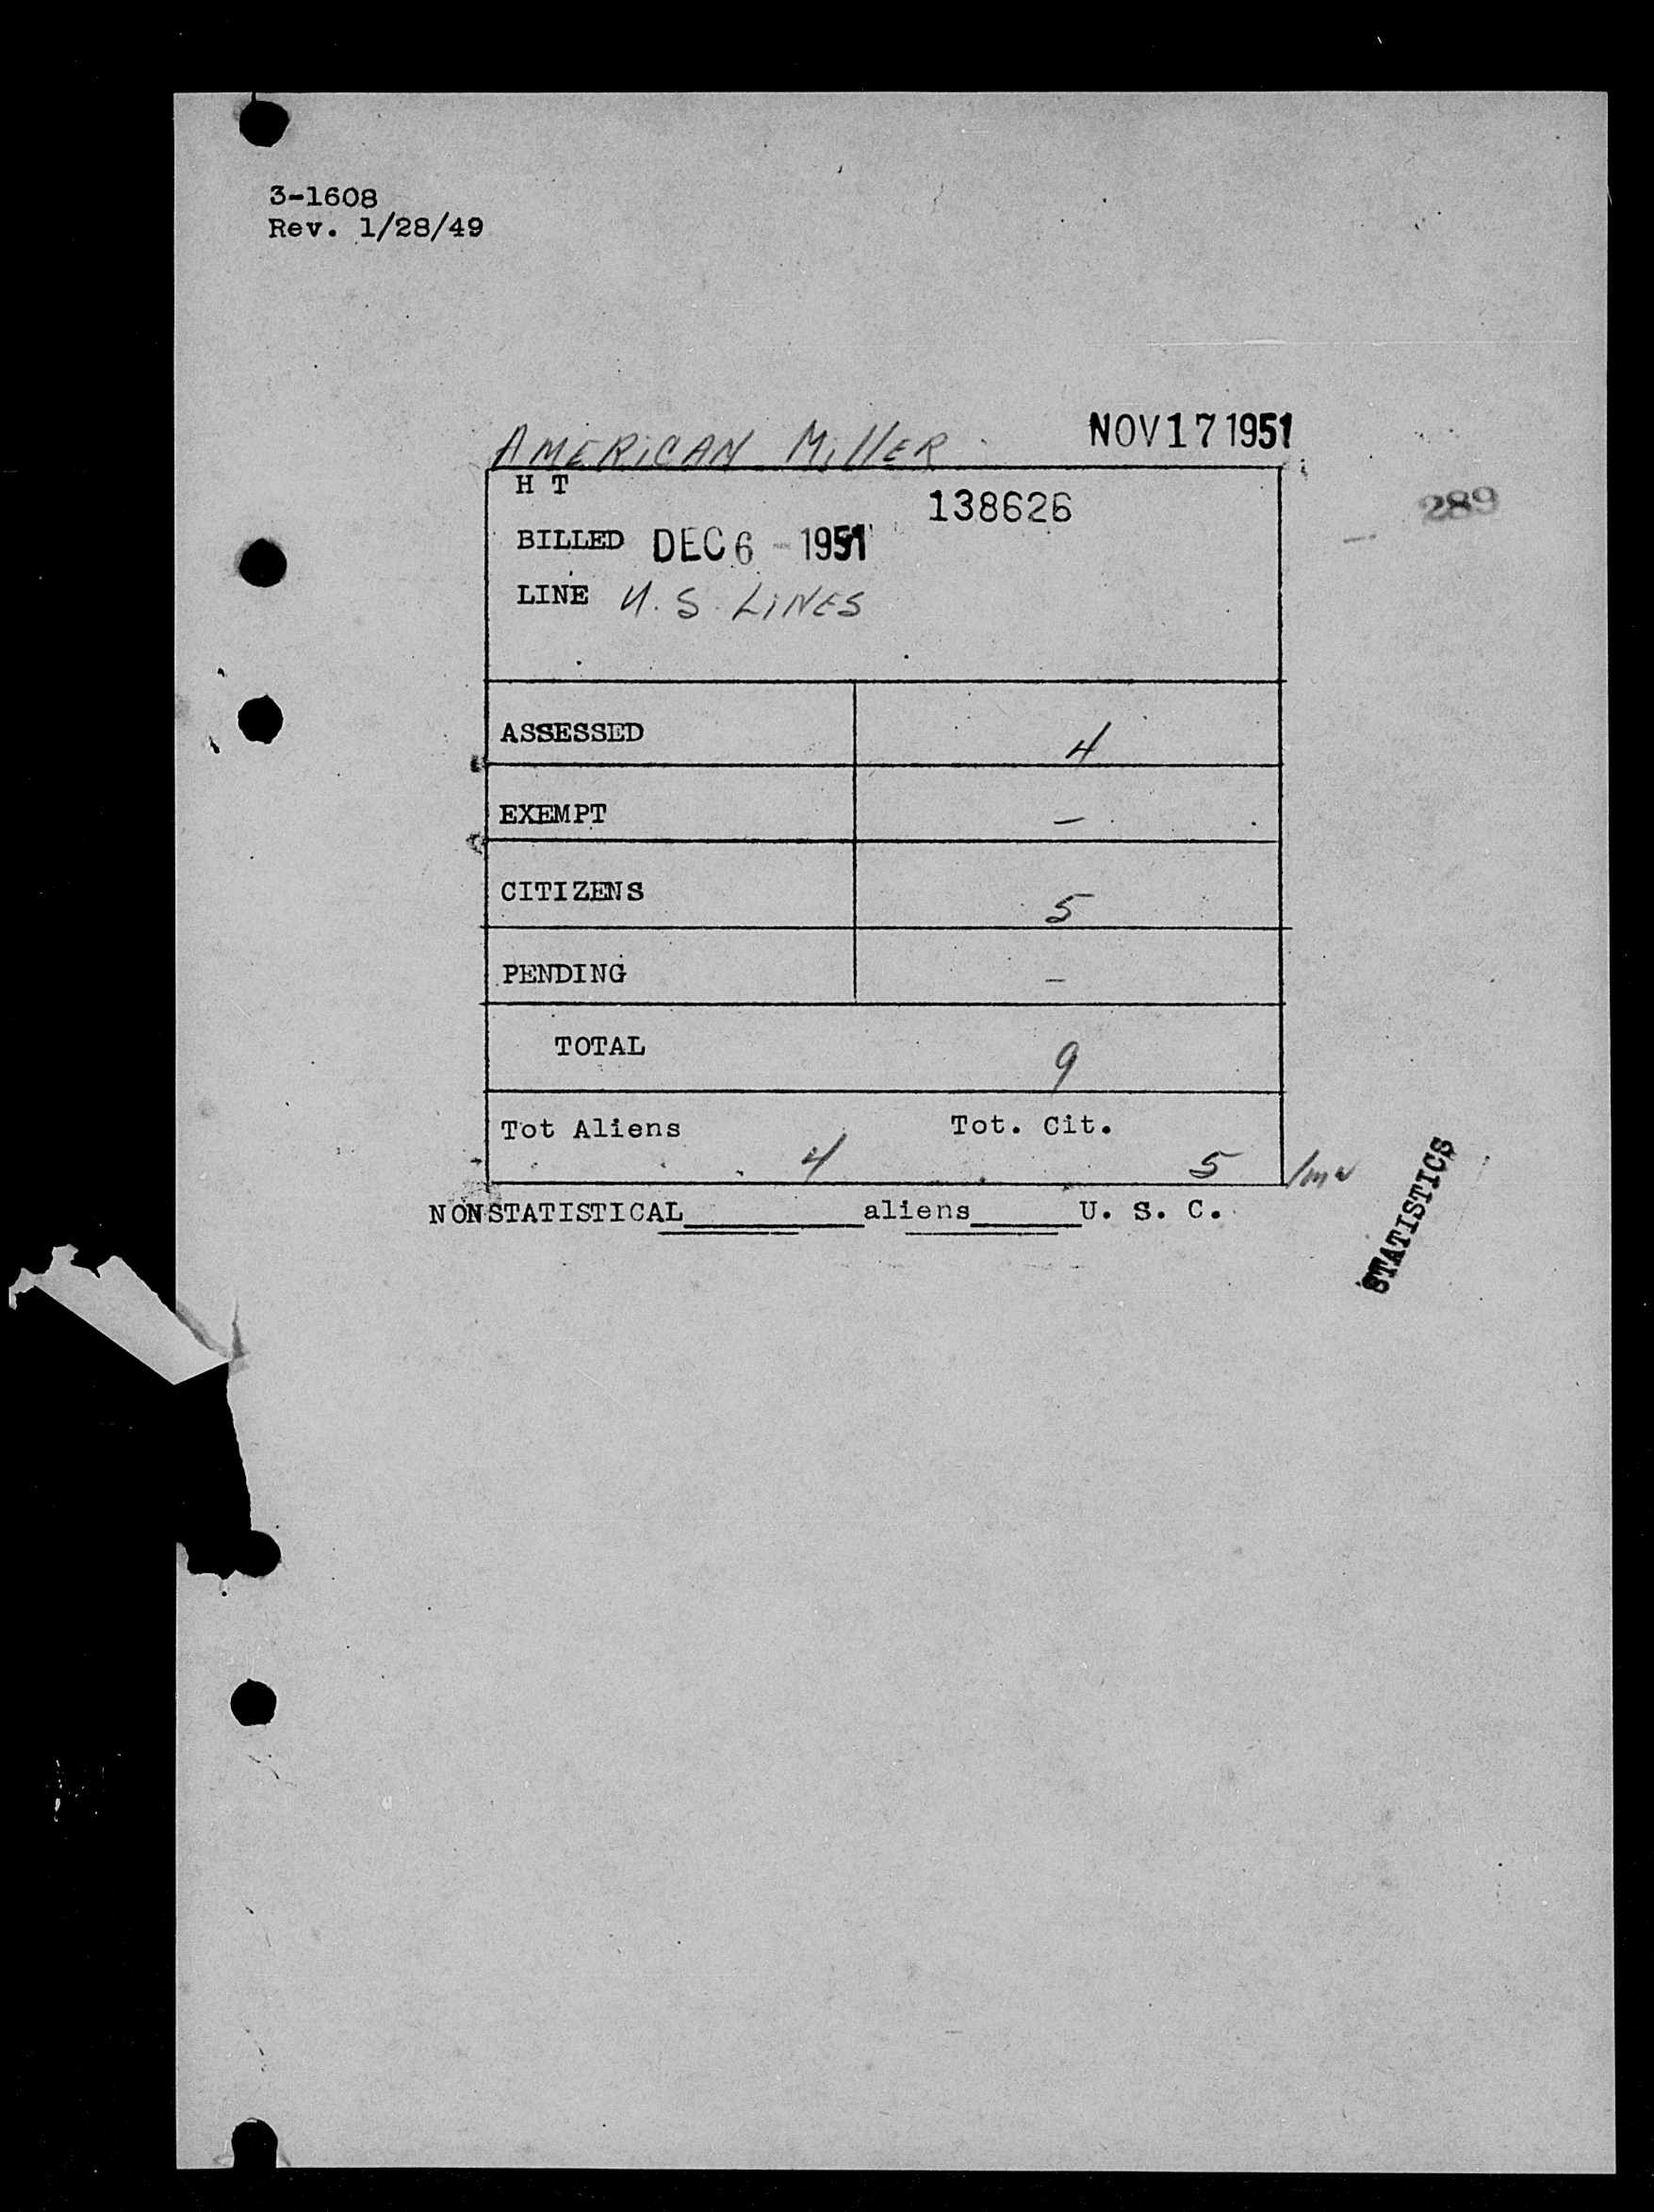 3-1608
Rev. 1/28/49
AMERICAN MillER NOV 17 1951
H T
138626
289
BILLED DEC 6 - 1951
LINE U.S. LINES
ASSESSED 4
EXEMPT -
CITIZENS 5
PENDING -
TOTAL 9
Tot Aliens 4 Tot. Cit. 5
STATISTICS
NONSTATISTICAL__________aliens______U. S. C.